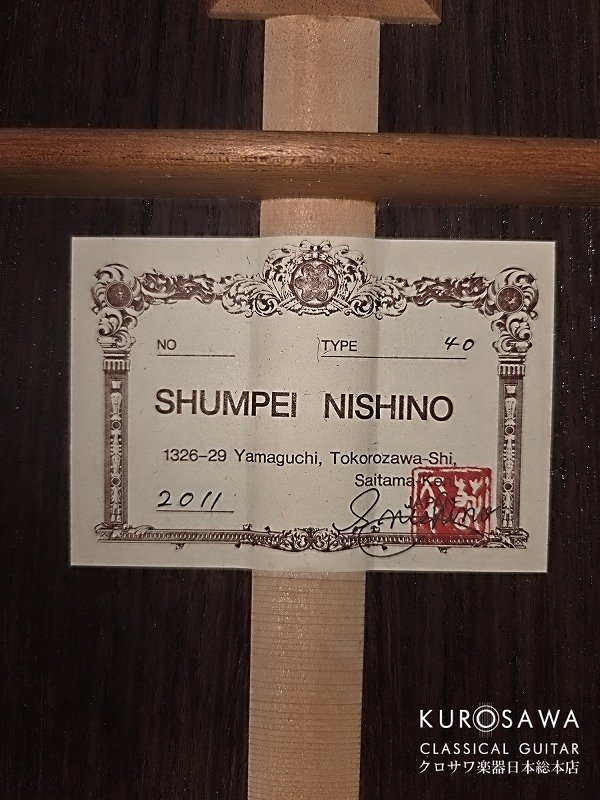 NO
TYPE 40
SHUMPEI NISHINO
1326-29 Yamaguchi, Tokorozawa-Shi,
Saitama-Ke
2011
S. Nishino
KUROSAWA
CLASSICAL GUITAR
クロサワ楽器日本総本店